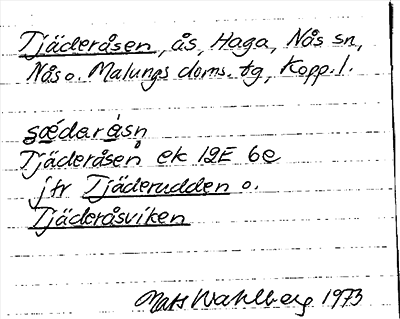 Tjäderåsen, ås, Haga, Nås sn,
Nås o. Malungs doms. tg, Kopp. l.
sǽdaråsn
Tjäderåsen ek 12E 6e
jfr Tjäderudden o.
Tjäderåsviken
Mats Wahlberg 1973